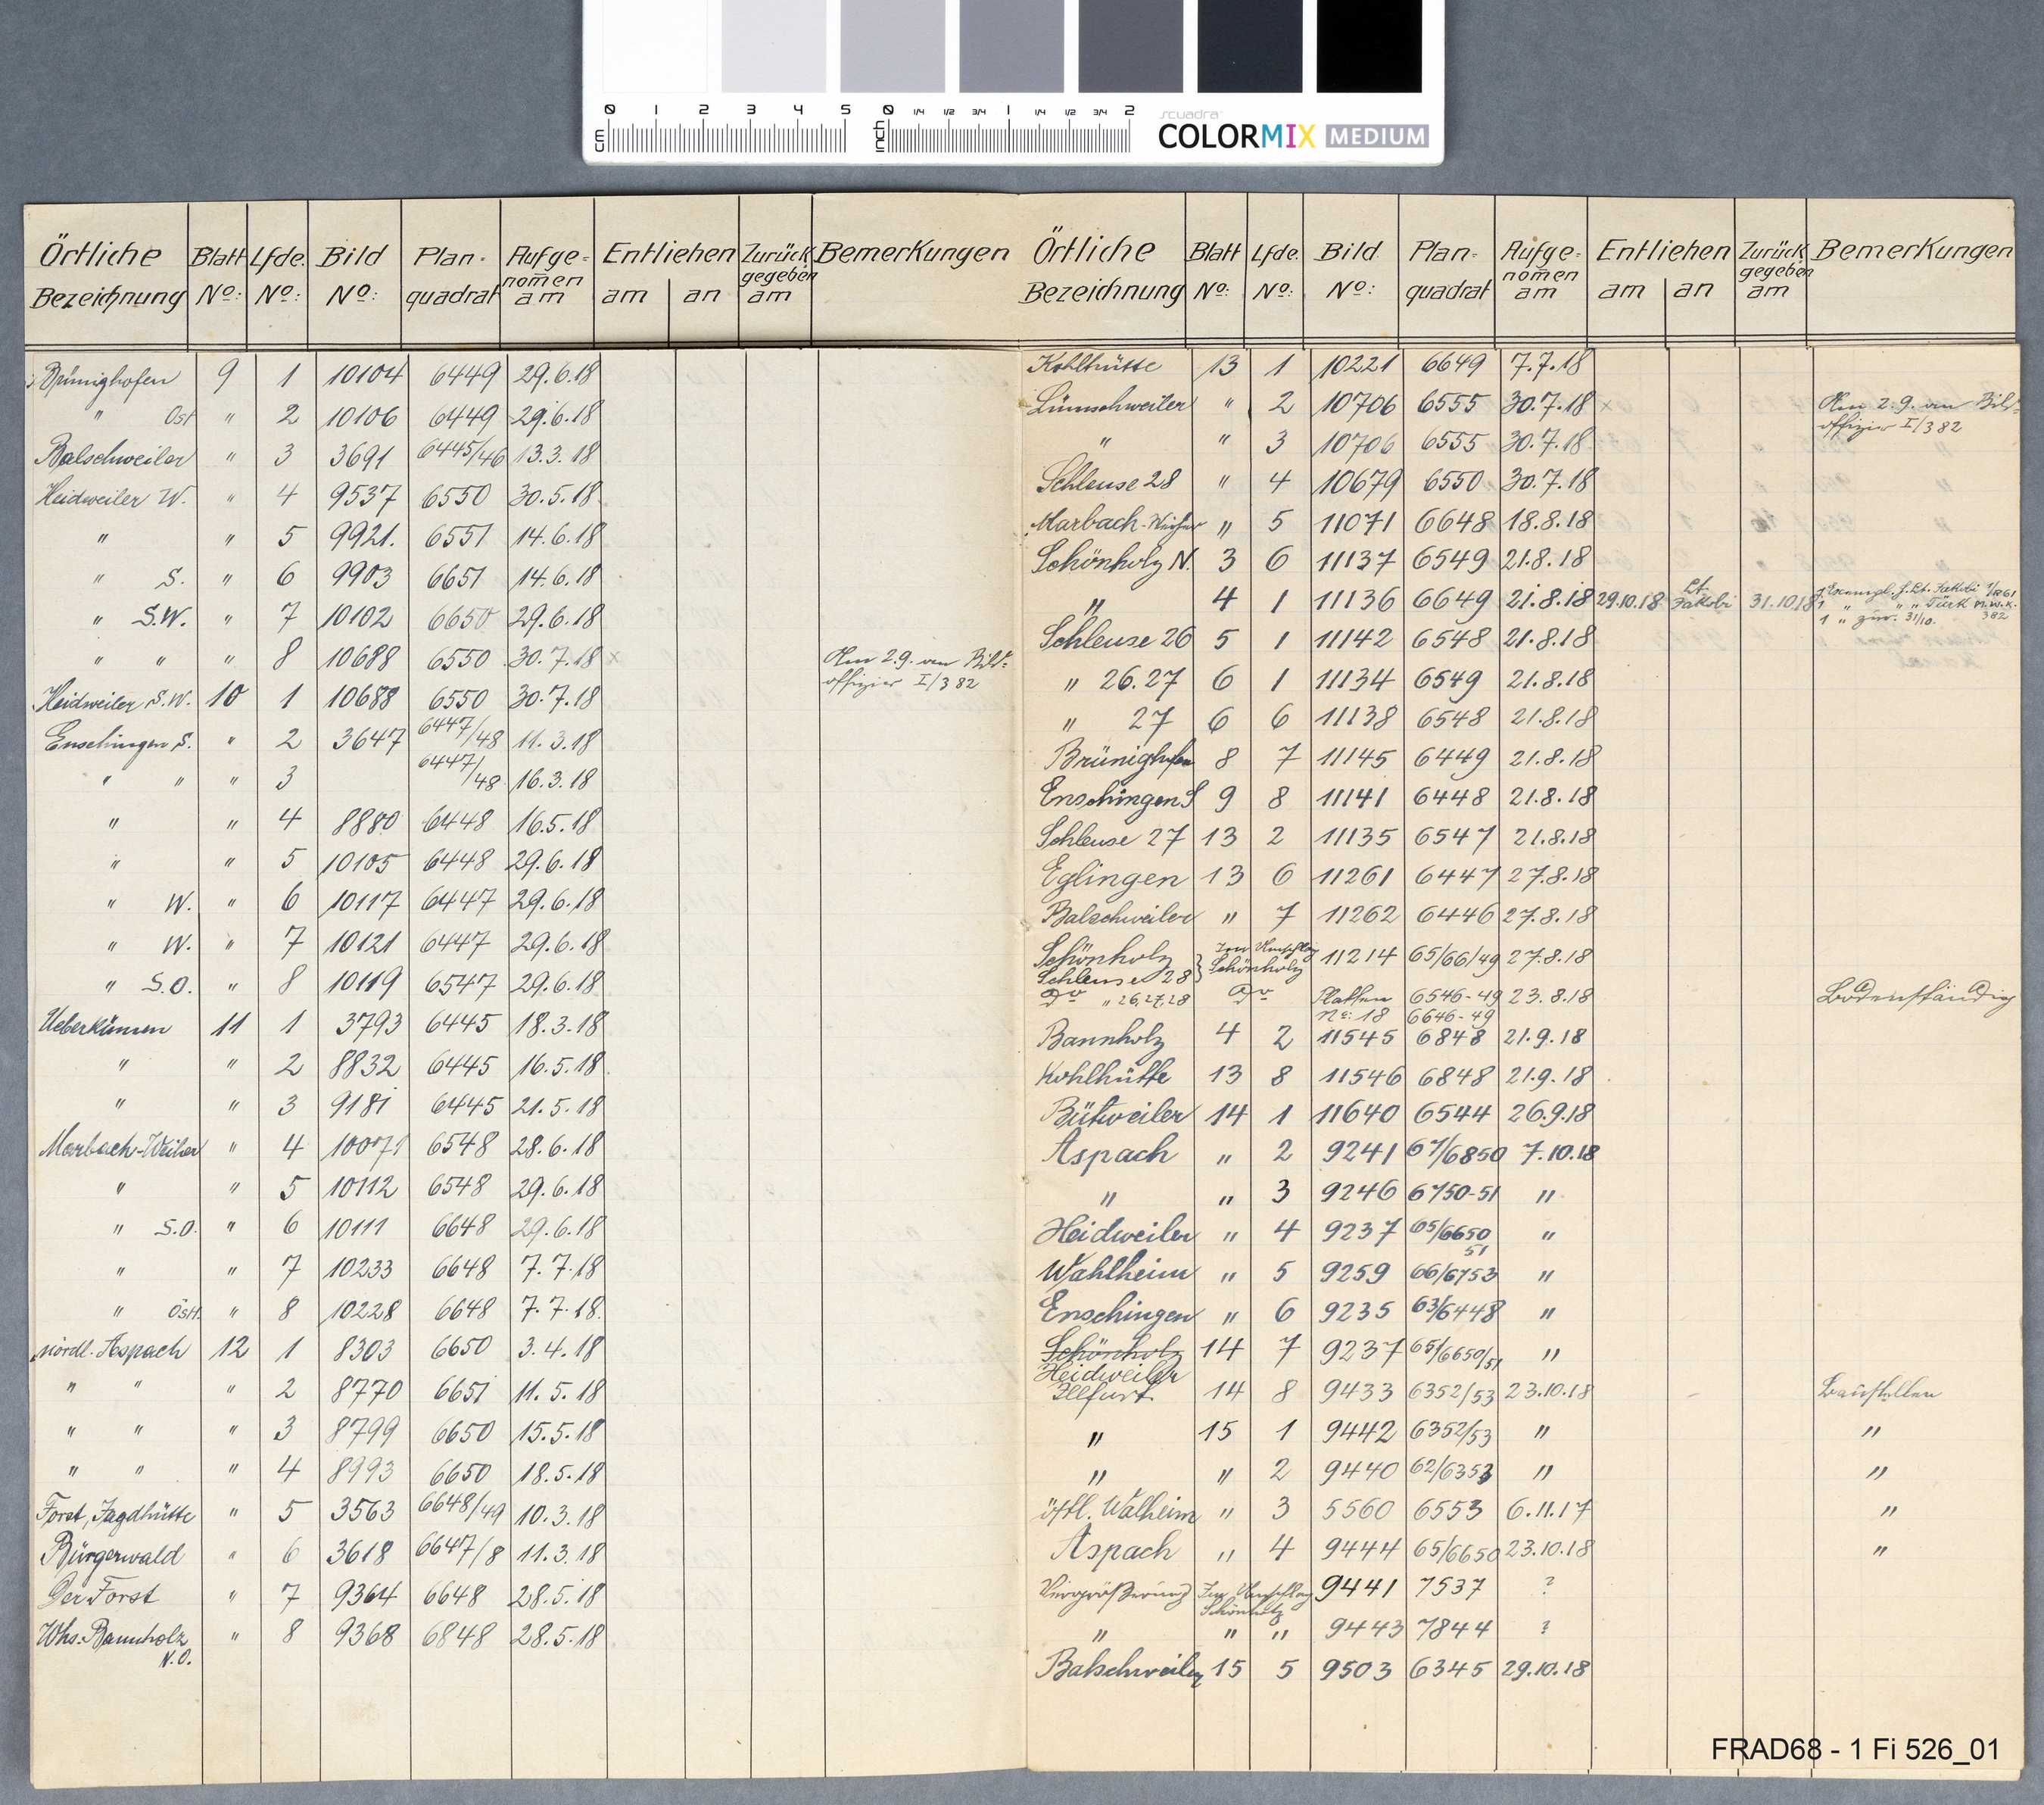 0 1 2 3 4 5 0 1/4 1/2 3/4 1 1/4 1/2 3/4 2
cm inch
scuadra
COLORMIX MEDIUM
Örtliche Bezeichnung Blatt No: Lfde. No: Bild No: Plan-quadrat Aufge-nom̄en am Entliehen am an Zurück gegeben am Bemerkungen
Brünighofen 9 1 10104 6449 29.6.18
" Ost " 2 10106 6449 29.6.18
Balschweiler " 3 3691 6445/46 13.3.18
Heidweiler W. " 4 9537 6550 30.5.18
" " 5 9921. 6551 14.6.18
" S. " 6 9903 6651 14.6.18
" S.W. " 7 10102 6650 29.6.18
" " " 8 10688 6550 30.7.18 x Am 2.9. an Bild-
offizier I/382
Heidweiler S.W. 10 1 10688 6550 30.7.18
Enschingen S. " 2 3647 6447/48 11.3.18
" " " 3 6447/48 16.3.18
" " 4 8880 6448 16.5.18
" " 5 10105 6448 29.6.18
" W. " 6 10117 6447 29.6.18
" W. " 7 10121 6447 29.6.18
" S.O. " 8 10119 6547 29.6.18
Ueberkümen 11 1 3793 6445 18.3.18
" " 2 8832 6445 16.5.18
" " 3 9181 6445 21.5.18
Marbach-Weiher " 4 10071 6548 28.6.18
" " 5 10112 6548 29.6.18
" S.O. " 6 10111 6648 29.6.18
" " 7 10233 6648 7.7.18
" Östl. " 8 10228 6648 7.7.18.
nördl. Aspach 12 1 8303 6650 3.4.18
" " " 2 8770 6651 11.5.18
" " " 3 8799 6650 15.5.18
" " " 4 8993 6650 18.5.18
Forst, Jagdhütte " 5 3563 6648/49 10.3.18
Bürgerwald " 6 3618 6647/8 11.3.18
Der Forst " 7 9364 6648 28.5.18
Whs: Bannholz " 8 9368 6848 28.5.18
N.O.
Örtliche Bezeichnung Blatt No: Lfde. No: Bild No: Plan-quadrat Aufge-nom̄en am Entliehen am an Zurück gegeben am Bemerkungen
Kohlhütte 13 1 10221 6649 7.7.18
Lümschweiler " 2 10706 6555 30.7.18 x Am 2.9. an Bild-
offizier I/382
" " 3 10706 6555 30.7.18
Schleuse 28 " 4 10679 6550 30.7.18
Marbach-Weiher " 5 11071 6648 18.8.18
Schönholz N. 3 6 11137 6549 21.8.18
" 4 1 11136 6649 21.8.18 29.10.18 Lt. Jakobi 31.10.18 Lt. Jakobi
1 " zur. 31/10. 382
Schleuse 26 5 1 11142 6548 21.8.18
" 26.27 6 1 11134 6549 21.8.18
" 27 6 6 11138 6548 21.8.18
Brünighofen 8 7 11145 6449 21.8.18
Enschingen S 9 8 11141 6448 21.8.18
Schleuse 27 13 2 11135 6547 21.8.18
Eglingen 13 6 11261 6447 27.8.18
Balschweiler " 7 11262 6446 27.8.18
Schönholz Im Umschlag 11214 65/66/49 27.8.18
Schleuse 28 } Schönholz
Do " 26,27,28 Do Platten 6546-49 23.8.18 Bodenständig
No: 18 6646-49
Bannholz 4 2 11545 6848 21.9.18
Kohlhütte 13 8 11546 6848 21.9.18
Bütweiler 14 1 11640 6544 26.9.18
Aspach " 2 9241 67/6850 7.10.18
" " 3 9246 6750-51 "
Heidweiler " 4 9237 65/6650 "
51
Wahlheim " 5 9259 66/6753 "
Enschingen " 6 9235 63/6448 "
Schönholz 14 7 9237 65/6650/51 "
Heidweiler
Illfurt. 14 8 9433 6352/53 23.10.18 Baustellen
" 15 1 9442 6352/53 " "
" " 2 9440 62/6353 " "
östl. Walheim " 3 5560 6553 6.11.17 "
Aspach " 4 9444 65/6650 23.10.18 "
Vergrößerung Im Umschlag 9441 7537 ?
Schönholz
" " " 9443 7844 ?
Balschweiler 15 5 9503 6345 29.10.18
FRAD68 - 1 Fi 526_01